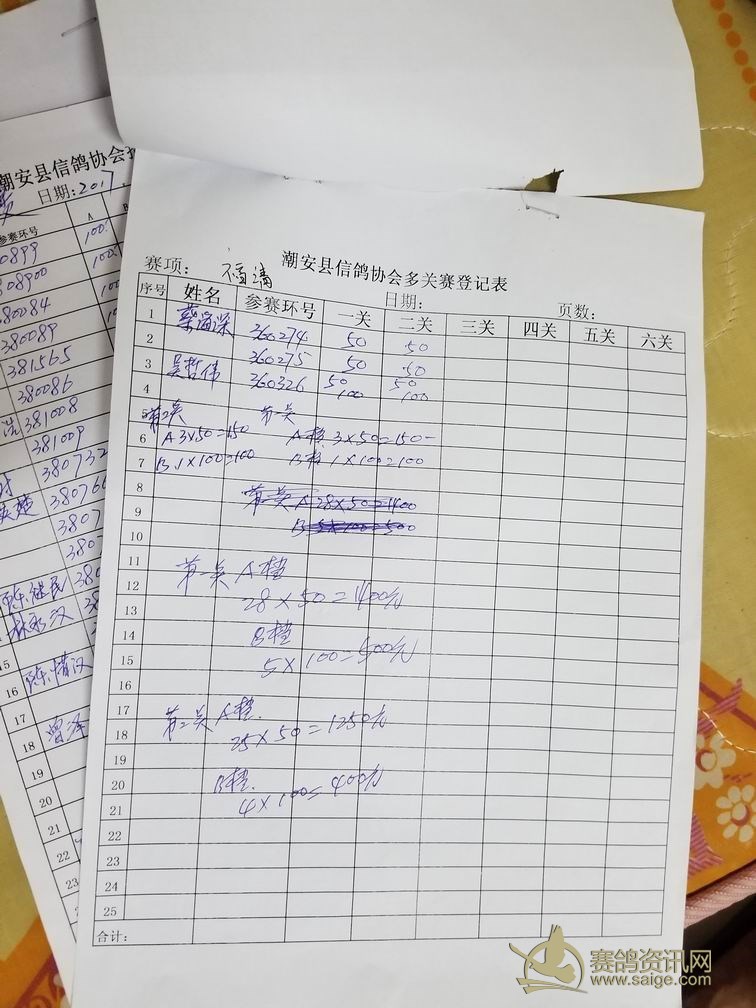 潮安县信鸽协会
日期:2017.
参赛环号 A B
0899 100.
08900 100.
80084
80089
381565
380086
381008
381009
380732
38076
3807
380
380
38
15
16
17
18
19
20
21
22
23
24
潮安县信鸽协会多关赛登记表
赛项: 福清 日期: 页数:
序号 姓名 参赛环号 一关 二关 三关 四关 五关 六关
1 360274 50 50
2 360275 50 50
3 吴哲伟 360326 50 100 50 100
4
5 第二关 第一关
6 A 3×50=150 A档 3×50=150
7 B 1×100=100 B档 1×100=100
8
9 第一关 A 28×50=1400
10 B 5×100=500
11 第一关 A档
12 28×50=1400元
13
14 B档
15 5×100=500元
16
17 第二关 A档.
18 25×50=1250元
19
20 B档.
21 4×100=400元
22
23
24
25
合计:
赛鸽资讯网
www.saige.com